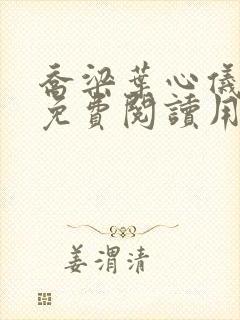 喬梁葉心儀
免費閱讀用
姜渭清